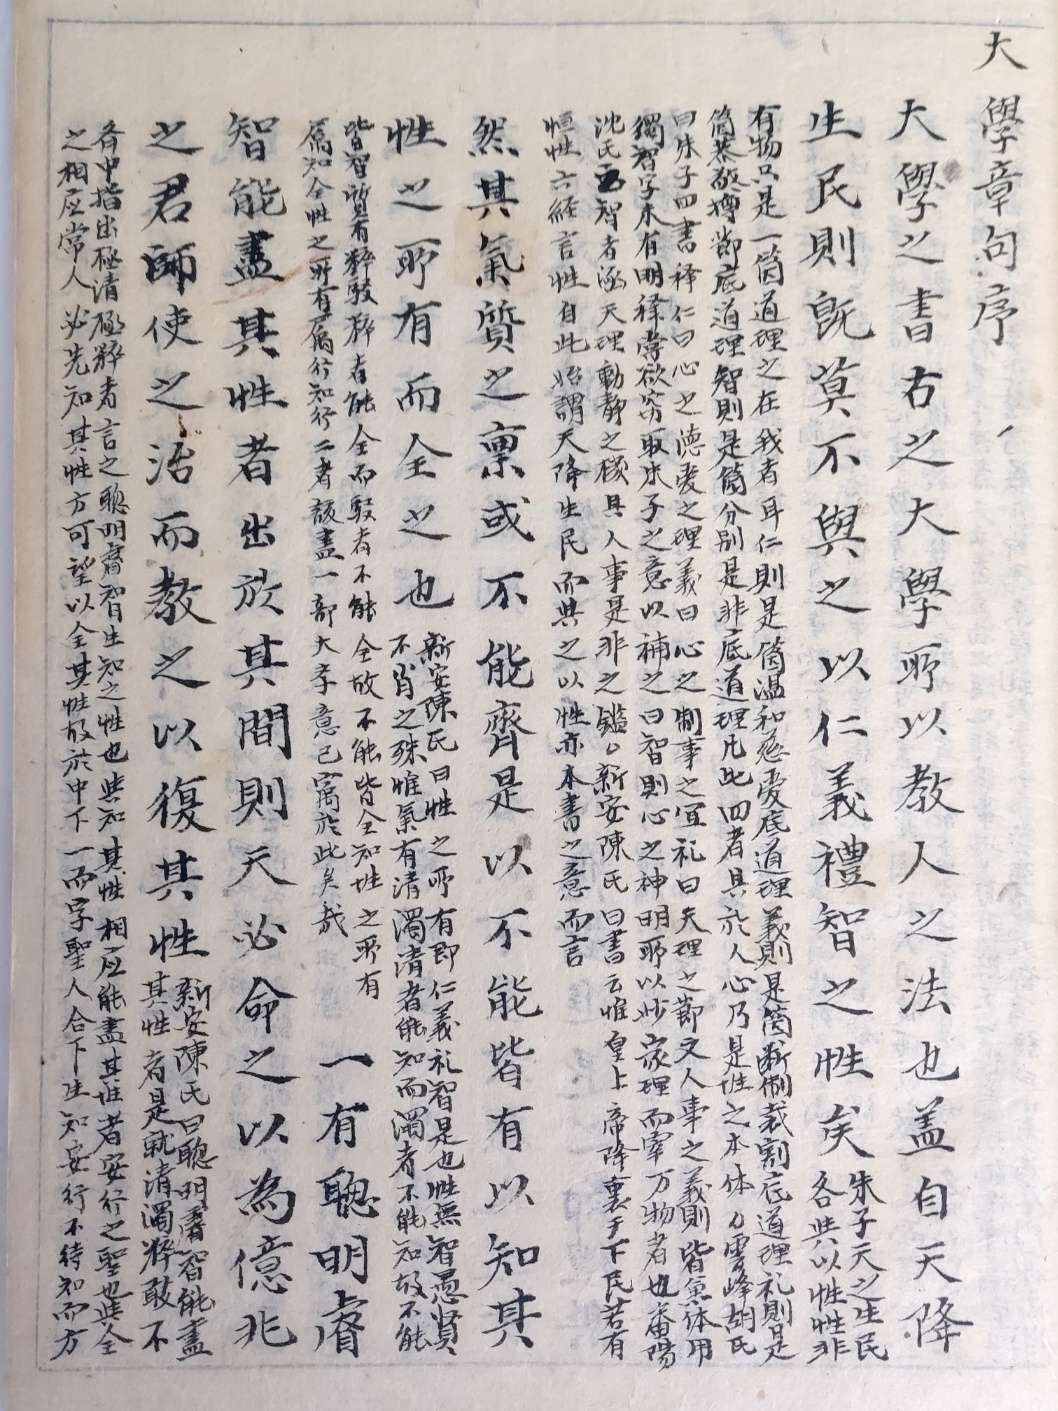 大學章句序
大學之書古之大學所以教人之法也盖自天降
生民則旣莫不與之以仁義禮智之性矣
朱子天之生民
各与以性性非
有物只是一箇道理之在我者耳仁則是箇温和慈爱底道理義則是箇断制裁割底道理礼則是
箇恭敬撙節底道理智則是箇分别是非底道理凡此四者具於人心乃是性之本体〻雲峰胡氏
曰朱子四書释仁曰心之德爱之理義曰心之制事之宜礼曰天理之節文人事之義則皆兼体用
獨智字未有明释嘗欲窃取朱子之意以補之曰智則心之神明所以妙衆理而宰万物者也番陽
沈氏云智者涵天理動静之機具人事是非之鑑〻新安陳氏曰書云惟皇上帝降衷于下民若有
恒性六経言性自此始謂天降生民而與之以性亦本書之意而言
然其氣質之禀或不能齊是以不能皆有以知其
性之所有而全之也
新安陳氏曰性之所有即仁義礼智是也性無智愚贤
不肖之殊惟氣有清濁清者能知而濁者不能知故不能
皆智質有粹駁粹者能全而駁者不能全故不能皆全知性之所有
属知全性之所有属行知行二者該盡一部大学意已寓於此矣哉
一有聰明睿
智能盡其性者出於其間則天必命之以為億兆
之君師使之治而教之以復其性
新安陳氏曰聰明睿智能盡
其性者是就清濁粹駁不
齐中指出極清極粹者言之聰明睿智生知之性也與知其性相应能盡其性者安行之聖也與全
之相应常人必先知其性方可望以全其性故於中下一而字聖人合下生知安行不待知而方